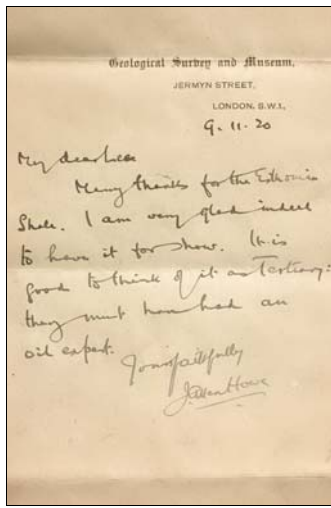 Geological Survey and Museum,
JERMYN STREET,
LONDON, S.W.1.,
9.11.20
My dear Lee
Many thanks for the Esthonian
Shale. I am very glad indeed
to have it for show. It is
good to think of it as Tertiary:
they must have had an
oil expert.
Yours faithfully
J. Allen Howe